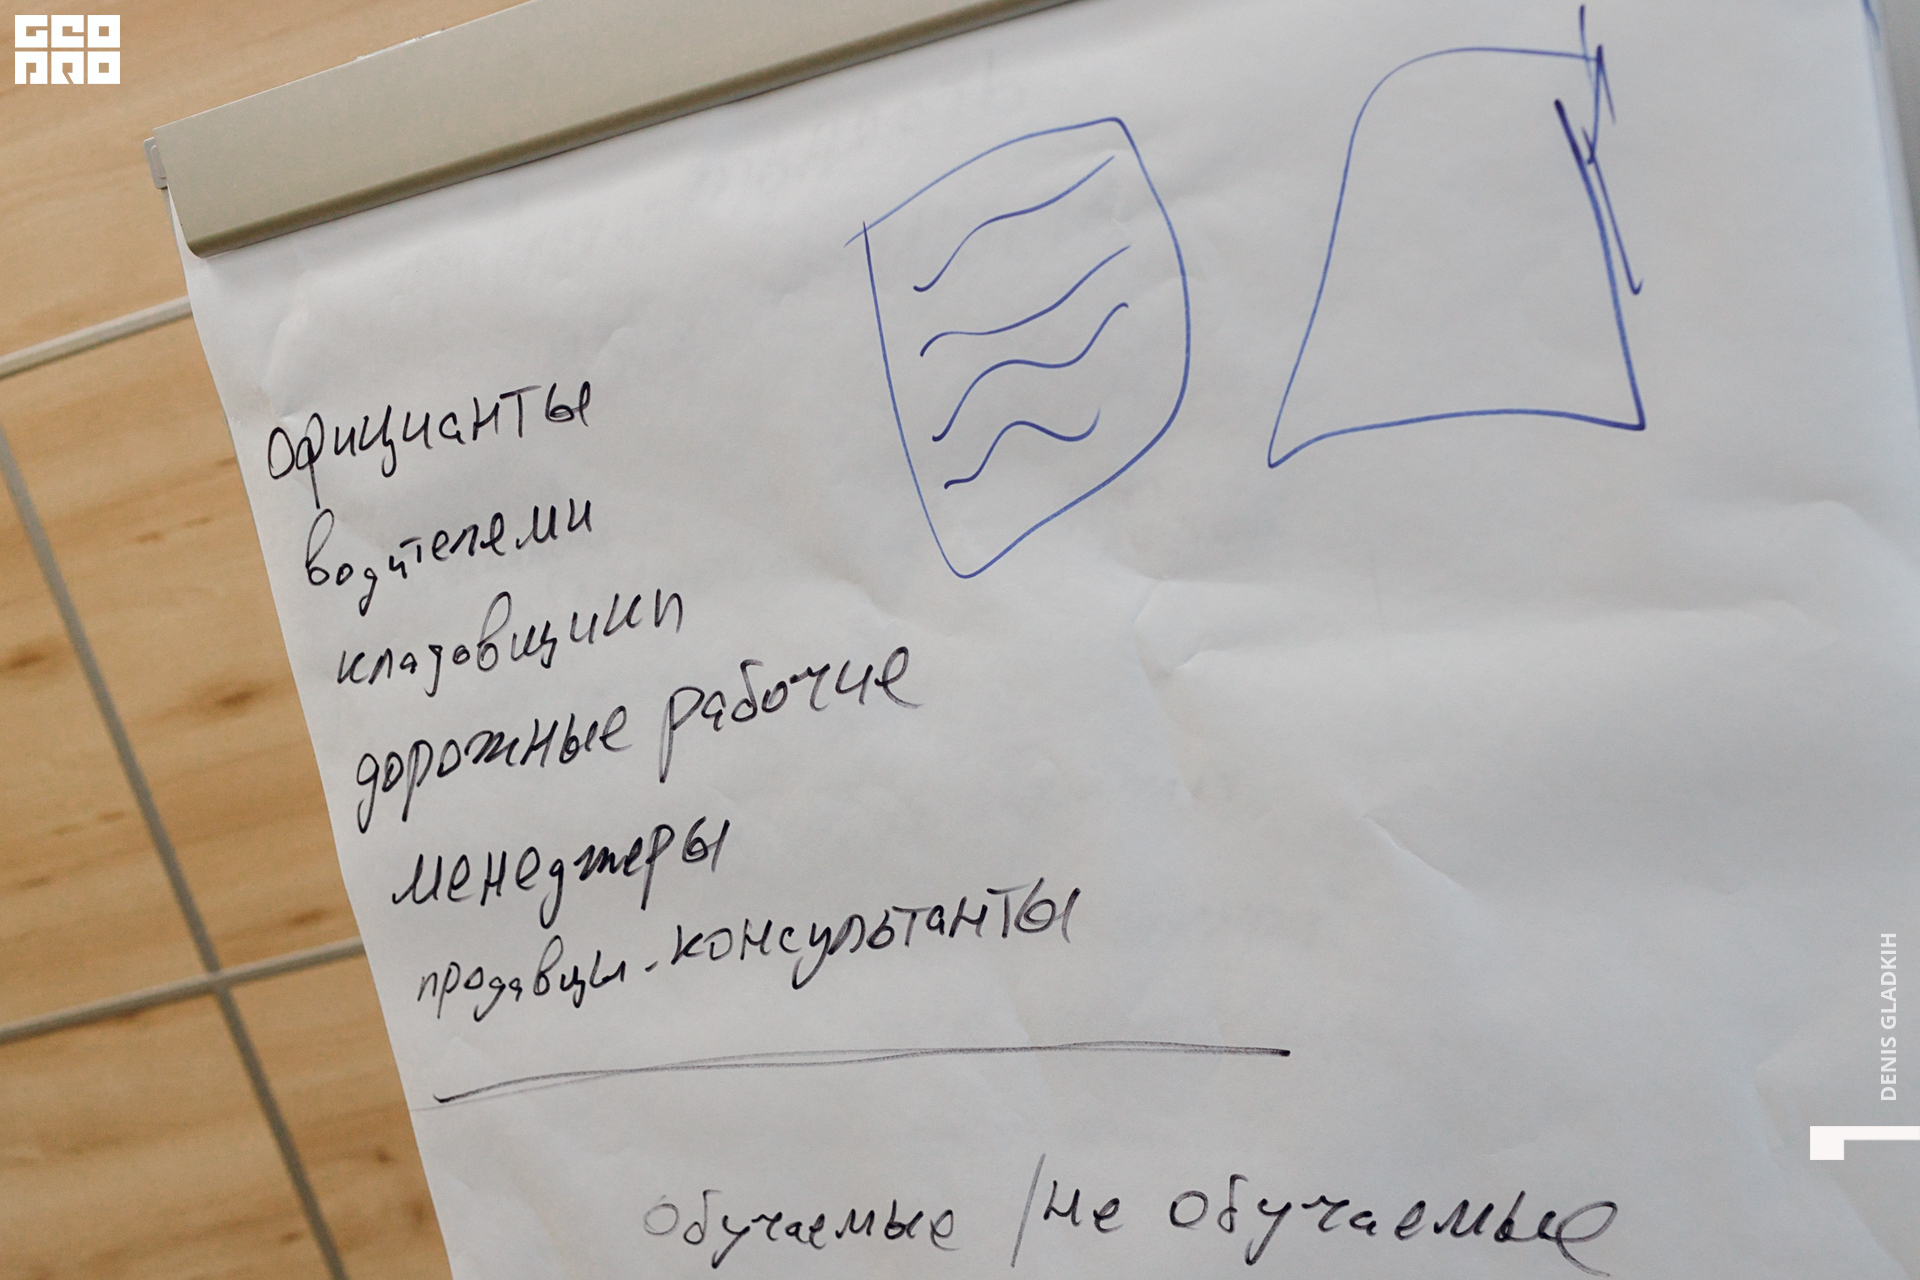 GEO
PRO
Официанты
водителями
кладовщики
дорожные рабочие
менеджеры
продавцы-консультанты
обучаемые / не обучаемые
DENIS GLADKIH